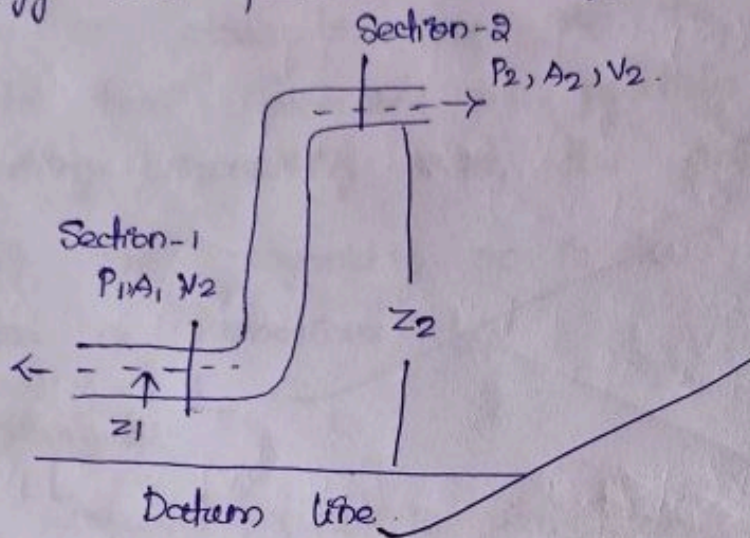 Section-2
P2, A2, V2.
Section-1
P1, A1, V2
Z2
Z1
Datum line